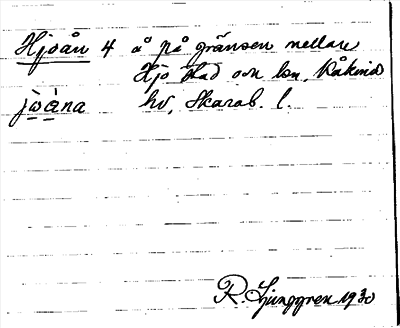 Hjoån 4 å på gränsen mellan
Hjo stad och lsn, Kåkinds
jòàna hd, Skarab. l.
R. Ljunggren 1930